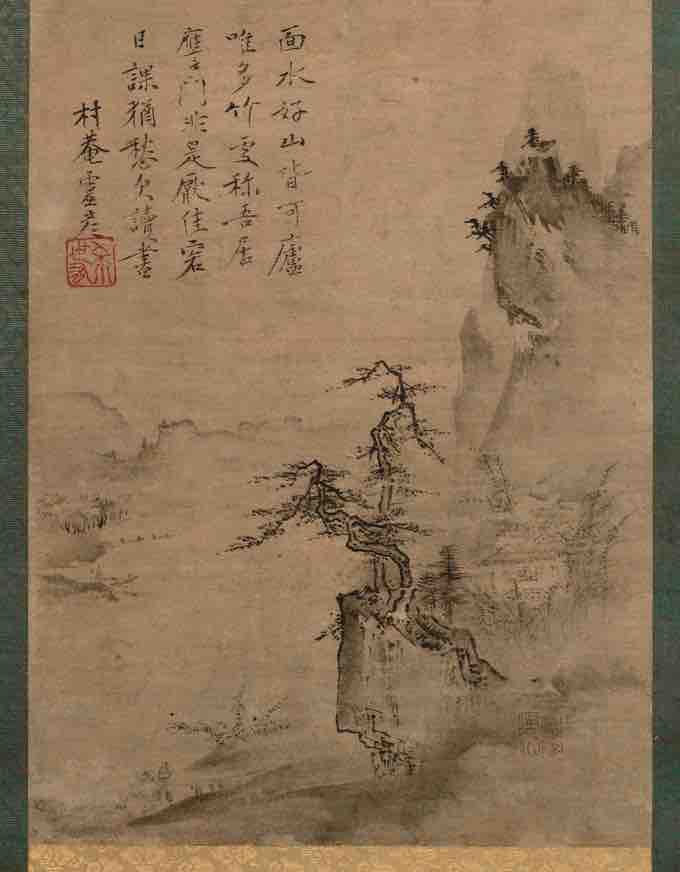 面水好山皆可廬
唯多竹處稱吾居
應門非是厭佳客
日課猶愁欠讀書
村菴靈彦